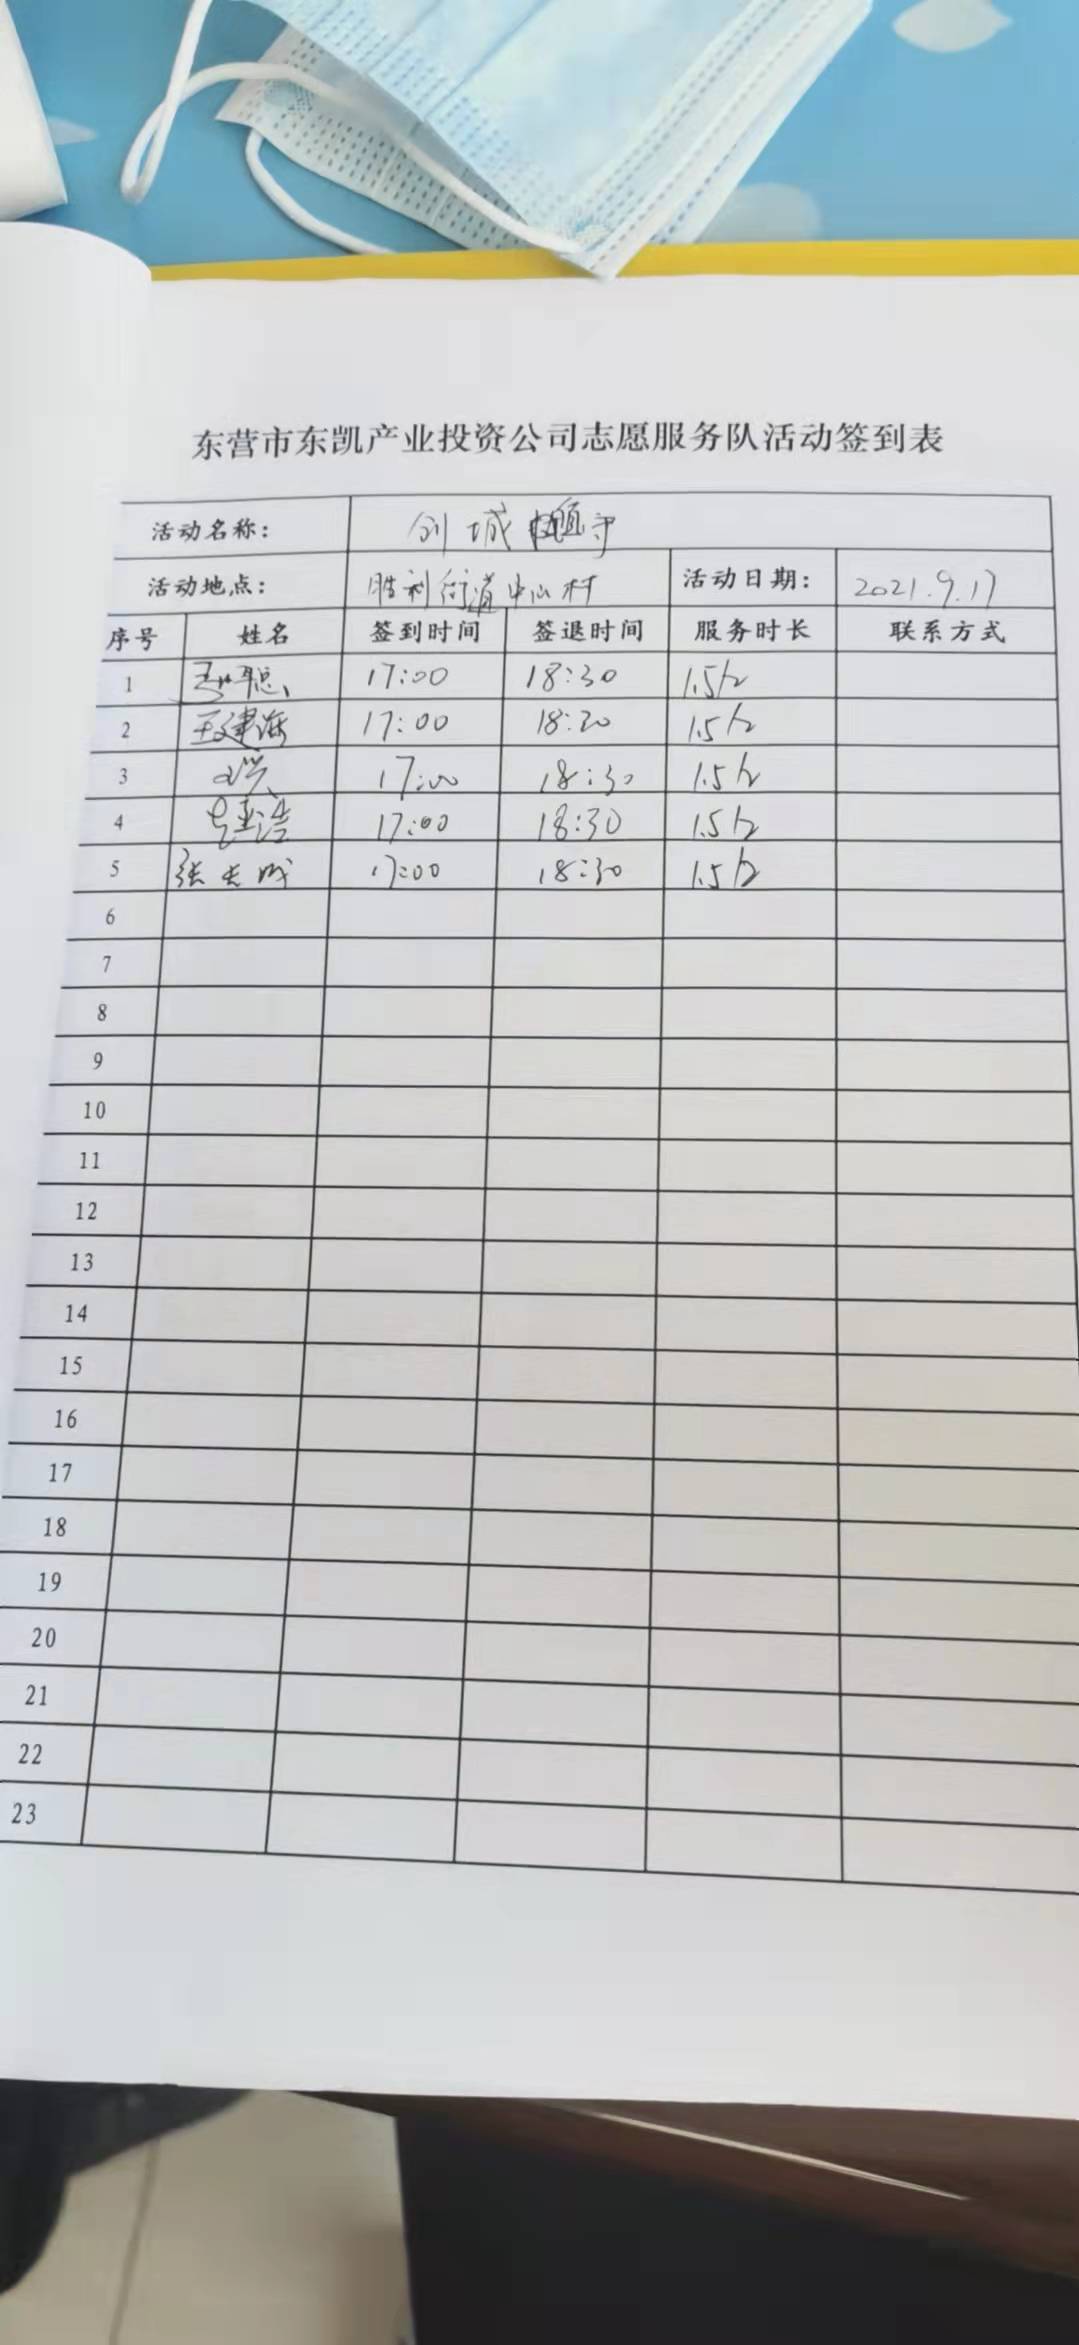 东营市东凯产业投资公司志愿服务队活动签到表
活动名称: 创城值守
活动地点: 胜利街道中心村 活动日期: 2021.9.17
序号 姓名 签到时间 签退时间 服务时长 联系方式
1 聪 17:00 18:30 1.5h
2 王建海 17:00 18:20 1.5h
3 17:00 18:30 1.5h
4 浩 17:00 18:30 1.5h
5 张长成 17:00 18:30 1.5h
6
7
8
9
10
11
12
13
14
15
16
17
18
19
20
21
22
23